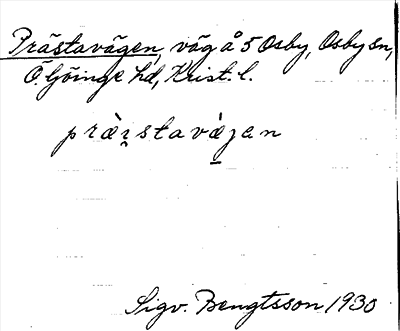 Prästavägen, väg å 5 Osby, Osby sn,
Ö. Göinge hd, Krist. l.
præ̀i̯stavæ̀gen
Sigv. Bengtsson 1930